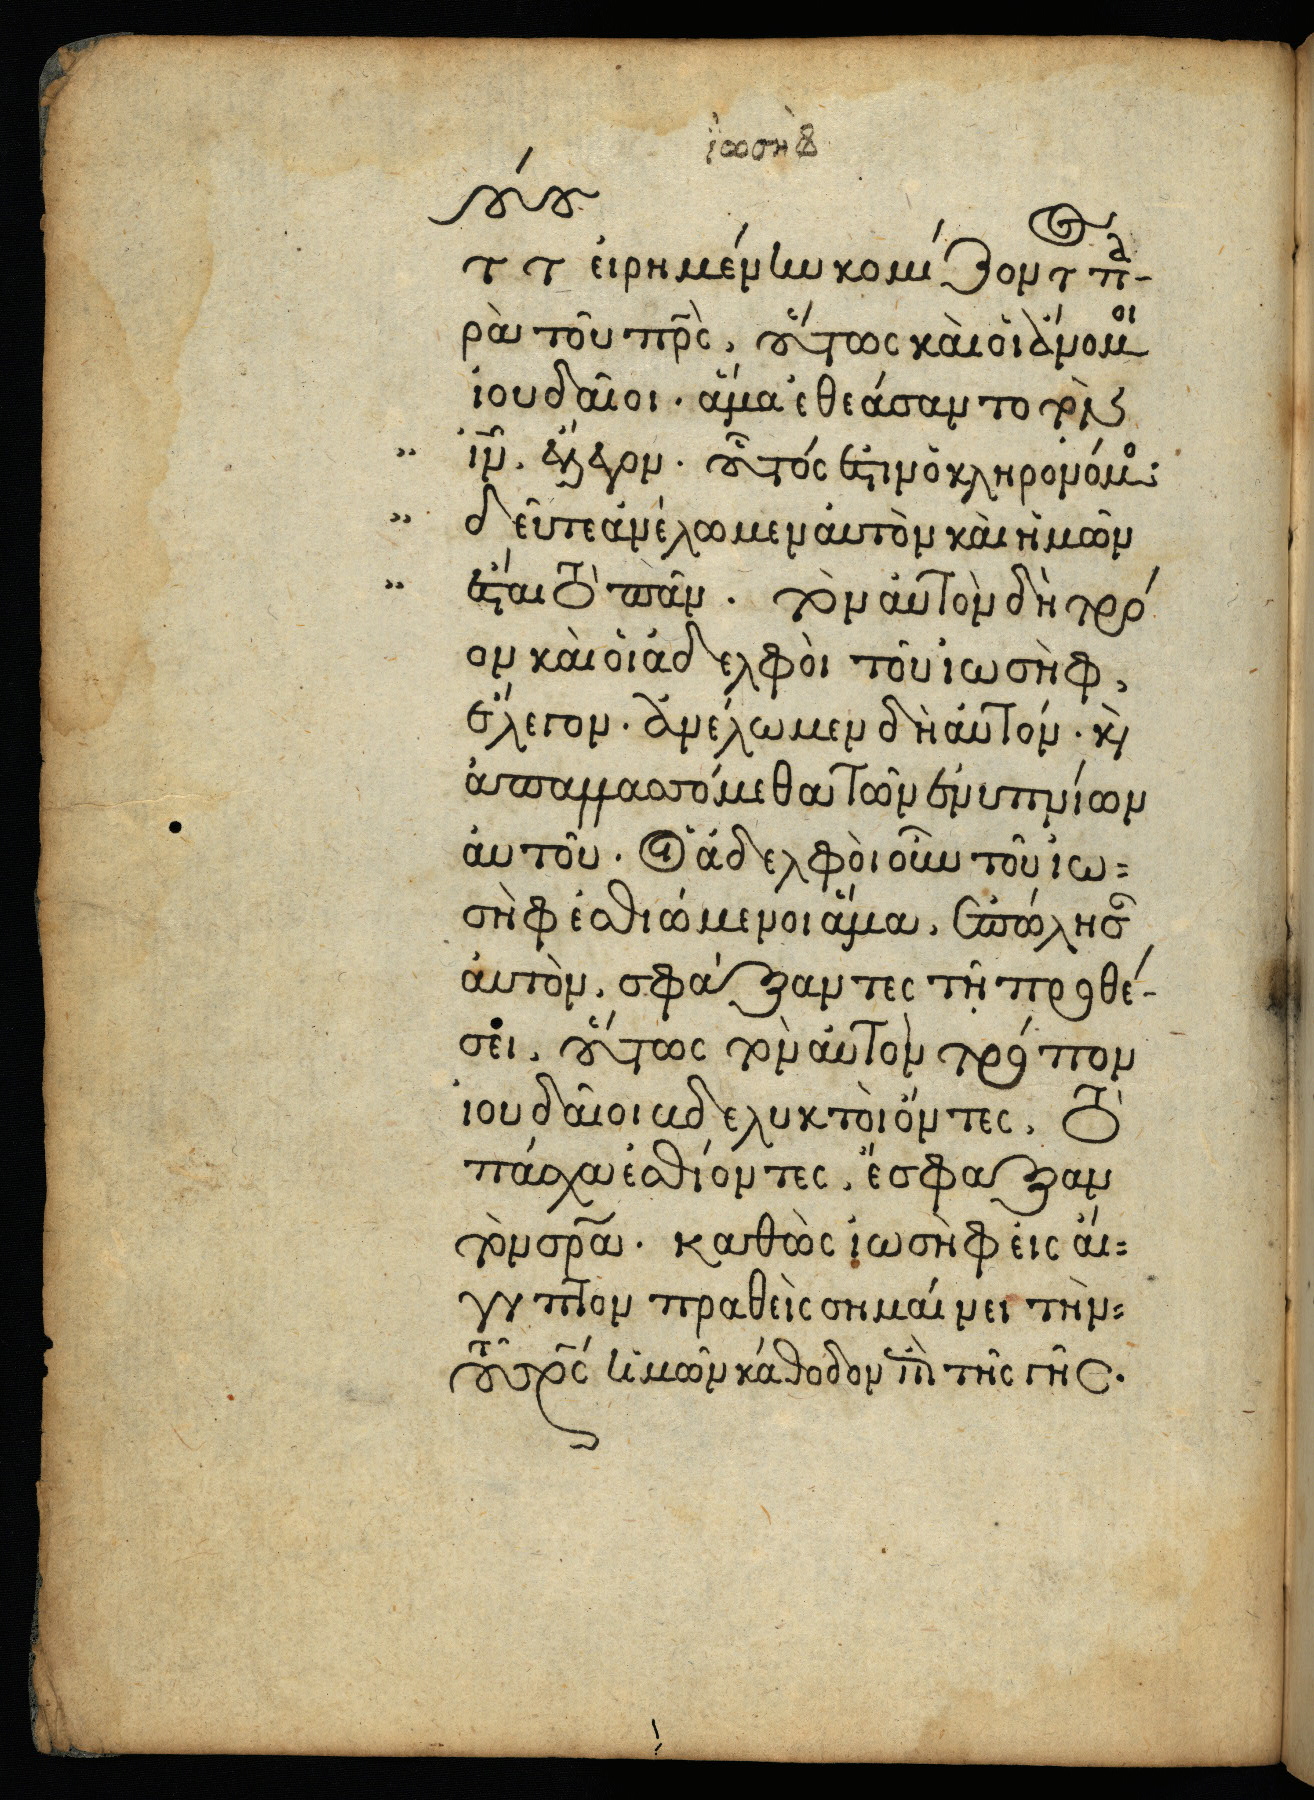 ἰωσὴφ
τὴν εἰρήνην κομίζοντα πα-
ρὰ τοῦ πρς, οὕτως καὶ οἱ ἄνομοι
ἰουδαῖοι· ἅμα ἐθεάσαντο τὸν χν
ιν, εἶπον· οὗτός ἐστιν ὁ κληρονόμος·
δεῦτε ἀνέλωμεν αὐτὸν καὶ ἡμῶν
ἔσται τὸ πᾶν. τὸν αὐτὸν δὴ τρό
ον καὶ οἱ ἀδελφοὶ τοῦ ἰωσὴφ,
ἔλεγον· ἀνέλωμεν δὴ αὐτόν· κὶ
ἀπαλλασσόμεθα τῶν ἐνυπνίων
αὐτοῦ. οἱ ἀδελφοὶ οὖν τοῦ ἰω=
σὴφ ἐσθιώμενοι ἅμα, ἐπώλησαν
αὐτὸν, σφάξαντες τῇ προθέ-
σει, οὕτως τὸν αὐτὸν τρόπον
ἰουδαῖοι βδελυκτοὶ ὄντες, τὸ
πάσχα ἐσθίοντες, ἔσφαξαν
τὸν σρα· καθὼς ἰωσὴφ εἰς αἴ=
γυπτον πραθεὶς σημαίνει τὴν=
τοῦ σρς ἡμῶν κάθοδον ἐπὶ τῆς γῆς.